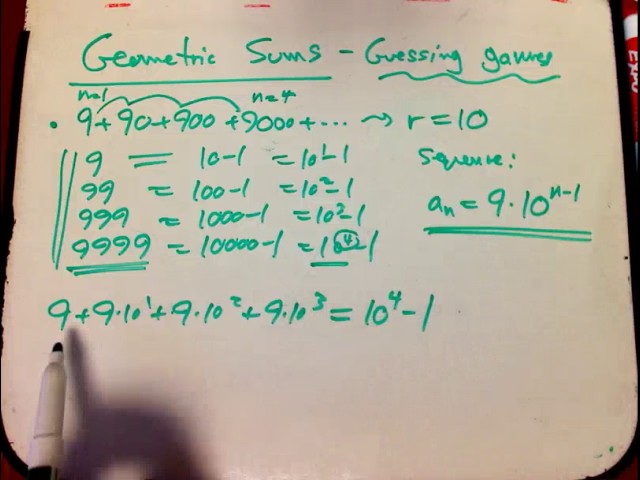 Geometric Sums - Guessing games
n=1 n=4
• 9+90+900+9000+... → r=10
9 = 10-1 = 10¹-1
99 = 100-1 = 10²-1
999 = 1000-1 = 10²-1
9999 = 10000-1 = 10⁴-1
Sequence:
aₙ = 9·10ⁿ⁻¹
9+9·10¹+9·10²+9·10³ = 10⁴-1
EXPO